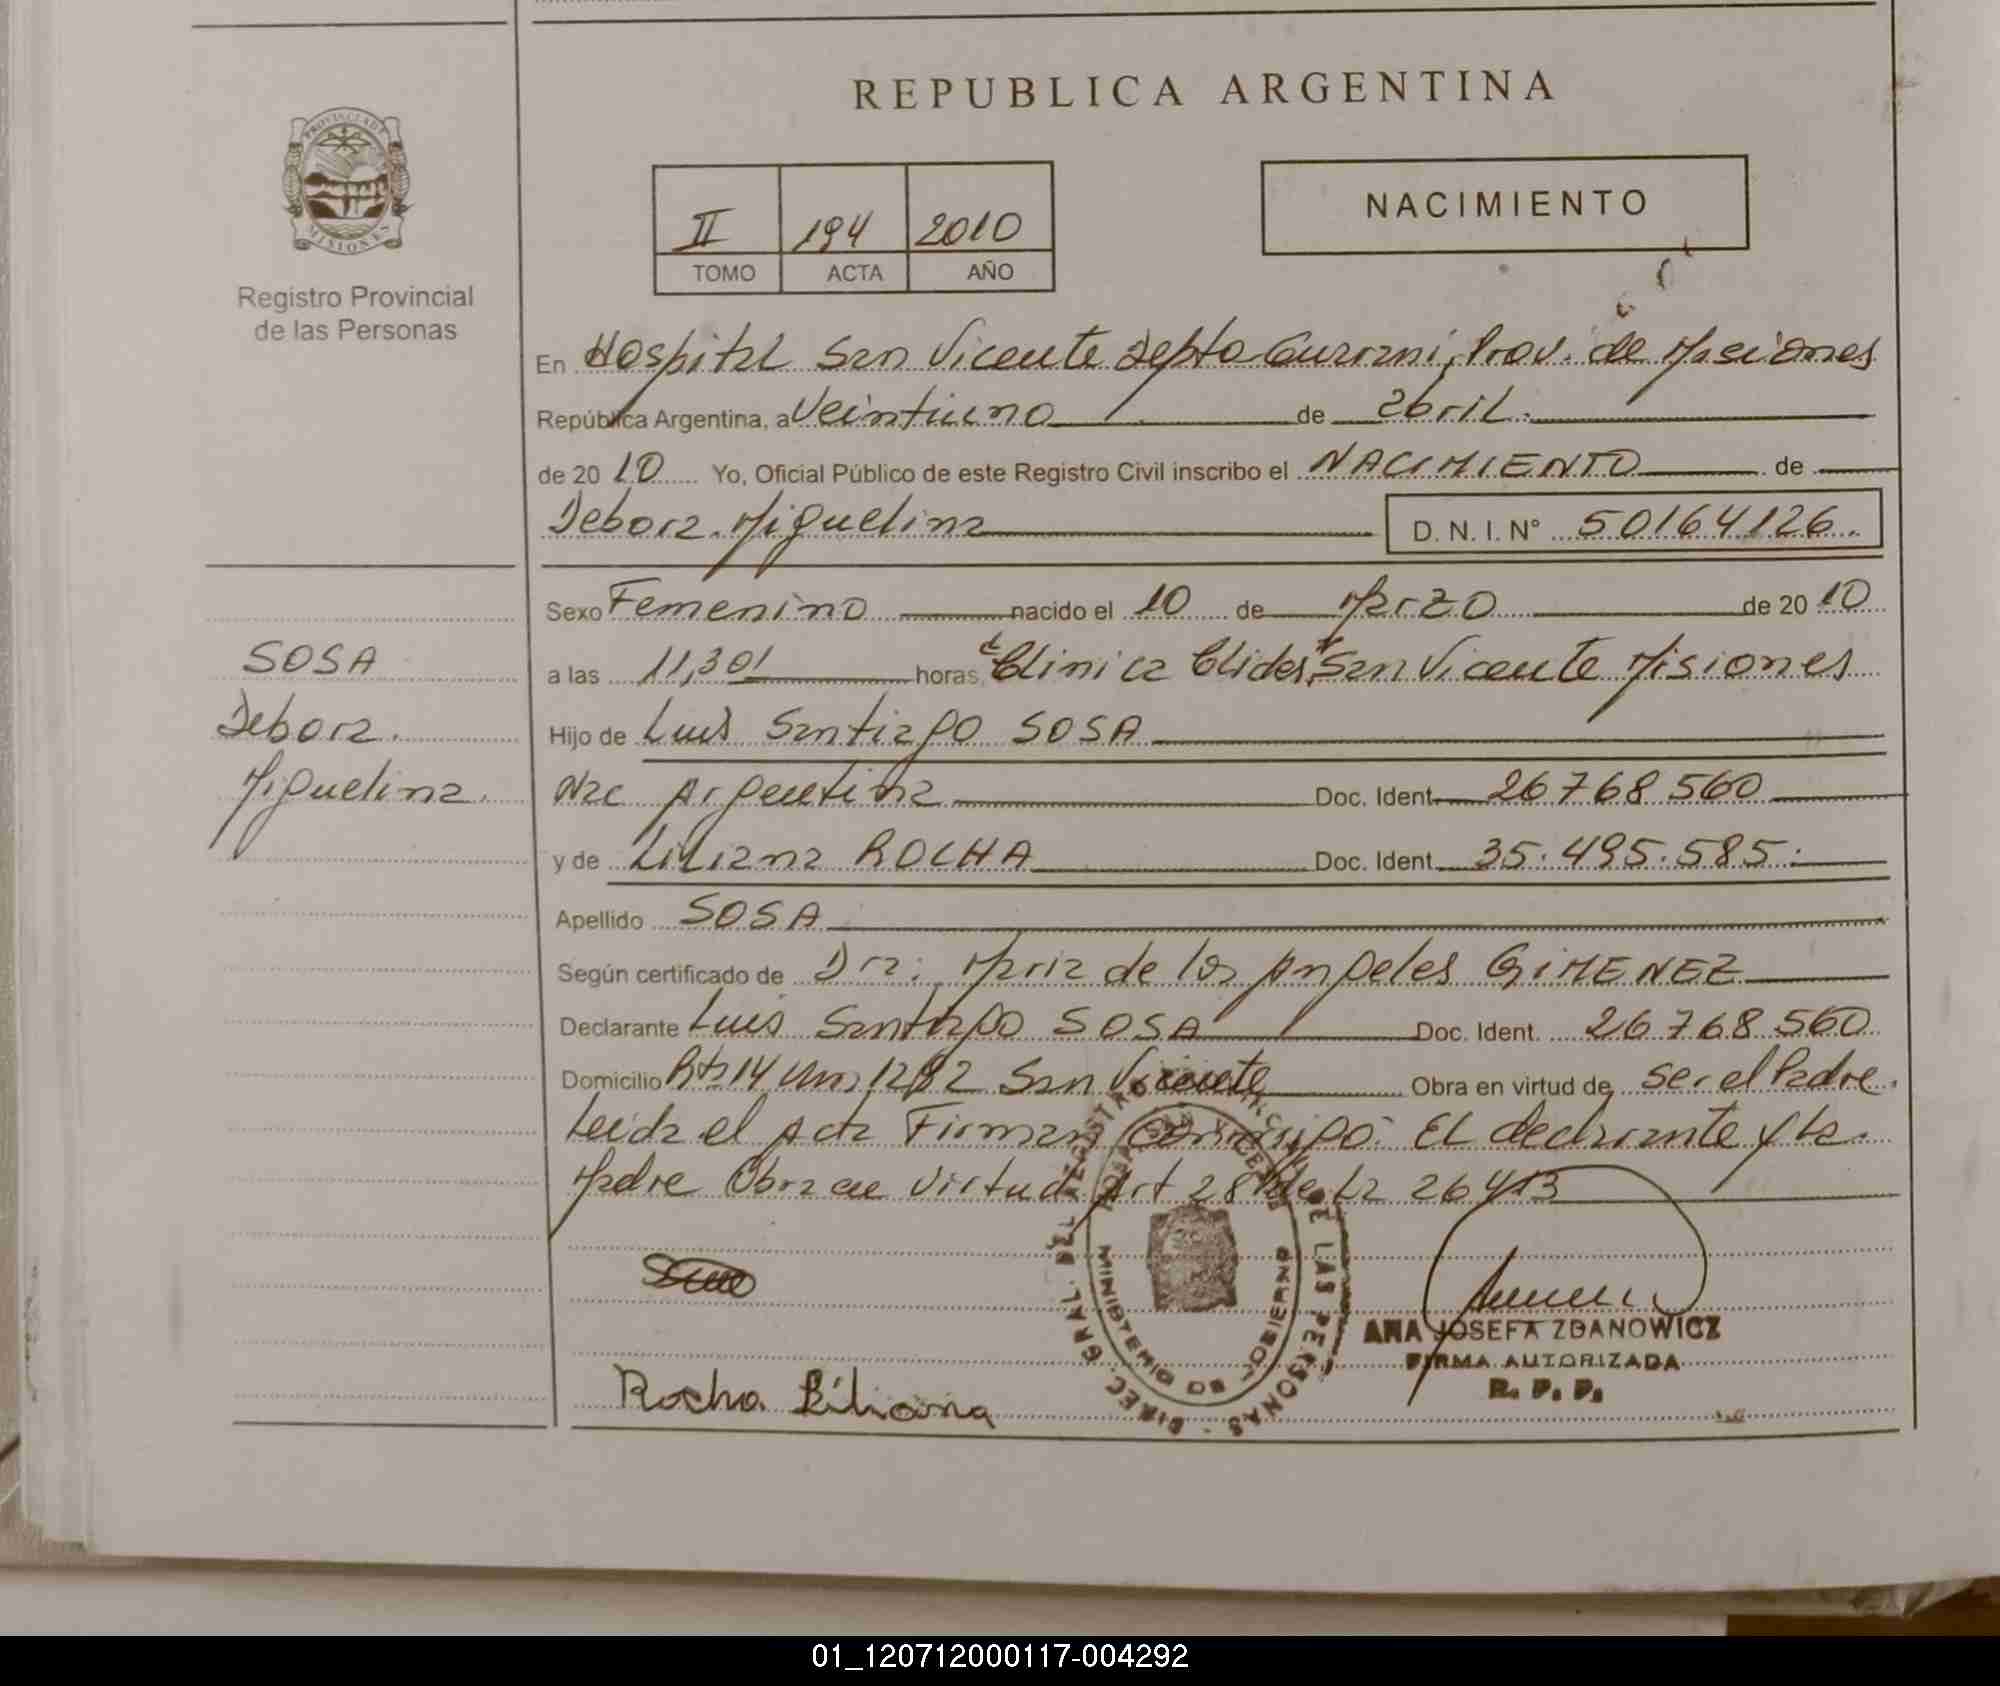 REPUBLICA ARGENTINA
PROVINCIA DE
MISIONES
Registro Provincial
de las Personas
II 194 2010
TOMO ACTA AÑO
NACIMIENTO
En Hospital San Vicente Depto Guarani, Prov. de Misiones
República Argentina, a Veintiuno de abril.
de 2010 Yo, Oficial Público de este Registro Civil inscribo el NACIMIENTO de
Debora Miguelina D. N. I. N° 50164126.
Sexo Femenino nacido el 10 de Marzo de 2010
a las 11,30 horas, Clinica Elider San Vicente Misiones
Hijo de Luis Santiago SOSA
Nac Argentina Doc. Ident. 26 768 560
y de Liliana ROCHA Doc. Ident. 35.495.585.
Apellido SOSA
Según certificado de Dra. Maria de los Angeles GIMENEZ
Declarante Luis Santiago SOSA Doc. Ident. 26 768 560
Domicilio Rta 14 Km 1282 San Vicente Obra en virtud de ser el Padre.
Leida el Acta Firman Conmigo: El declarante y la
Madre Obra en virtud Art 28 de La 26413
SOSA
Debora
Miguelina.
DIREC. GRAL. DEL REGISTRO DE LAS PERSONAS
HOSPITAL SAN VICENTE
MINISTERIO DE GOBIERNO
ANA JOSEFA ZDANOWICZ
FIRMA AUTORIZADA
R. P. P.
Rocha Liliana
01_120712000117-004292